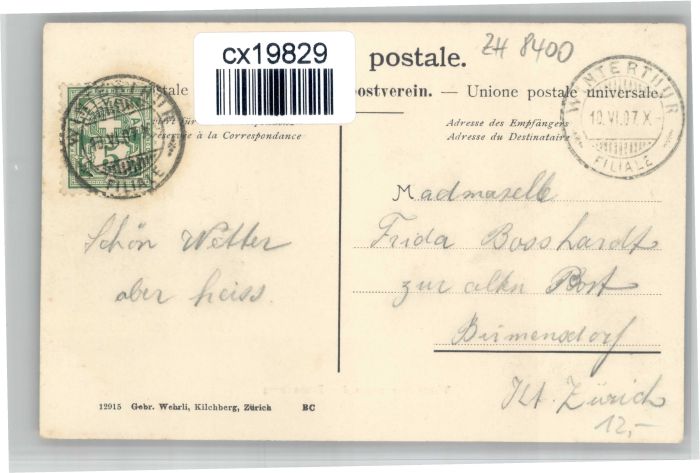 cx19829
postale.
ZH 8400
stale
ostverein. — Unione postale universale.
à la Correspondance
Adresse des Empfängers
Adresse du Destinataire
WINTERTHUR
10.VI.07.X
FILIALE
WINTERTHUR
10.VI.07.X
FILIALE
Schön Wetter
aber heiss.
Madmaselle
Frida Bosshardt
zur alten Post
Birmensdorf
Kt. Zürich
12,-
12915 Gebr. Wehrli, Kilchberg, Zürich BC